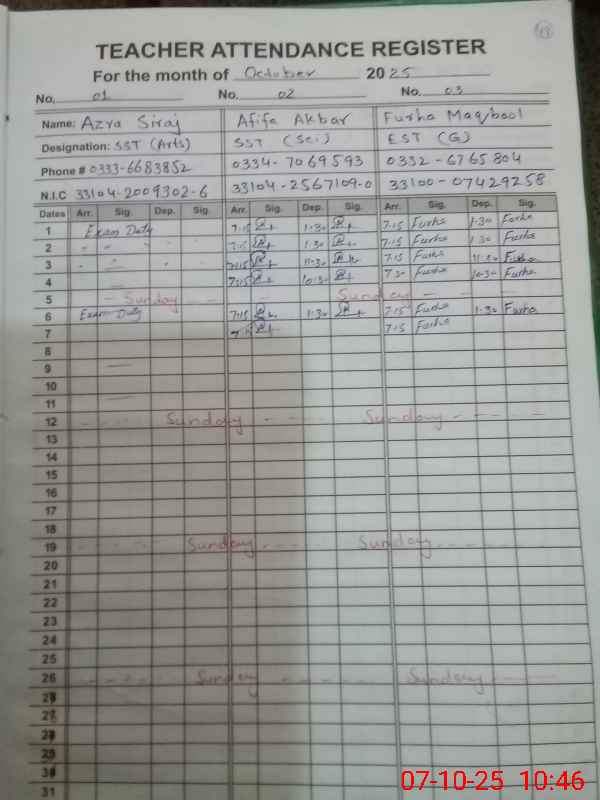 TEACHER ATTENDANCE REGISTER
For the month of October 2025
No. 01 No. 02 No. 03
Name: Azra Siraj Afifa Akbar Furha Maqbool
Designation: SST (Arts) SST (Sci) EST (G)
Phone # 0333-6683852 0334-7069593 0332-6765804
N.I.C 33104-2009302-6 33104-2567109-0 33100-07429258
Dates Arr. Sig. Dep. Sig. Arr. Sig. Dep. Sig. Arr. Sig. Dep. Sig.
1 Exam Duty 7:15 1:30 7:15 Furha 1:30 Furha
2 " " " 7:15 1:30 7:15 Furha 1:30 Furha
3 7:15 11:30 7:15 Furha Furha
4 7:15 10:30 7:30 Furha 10:30 Furha
5 Sunday Sunday
6 Exam Duty 7:15 1:30 7:15 Furha 1:30 Furha
7 7:15 7:15 Furha
8
9
10
11
12 Sunday Sunday
13
14
15
16
17
18
19 Sunday Sunday
20
21
22
23
24
25
26 Sunday Sunday
27
28
29
30
31
07-10-25 10:46